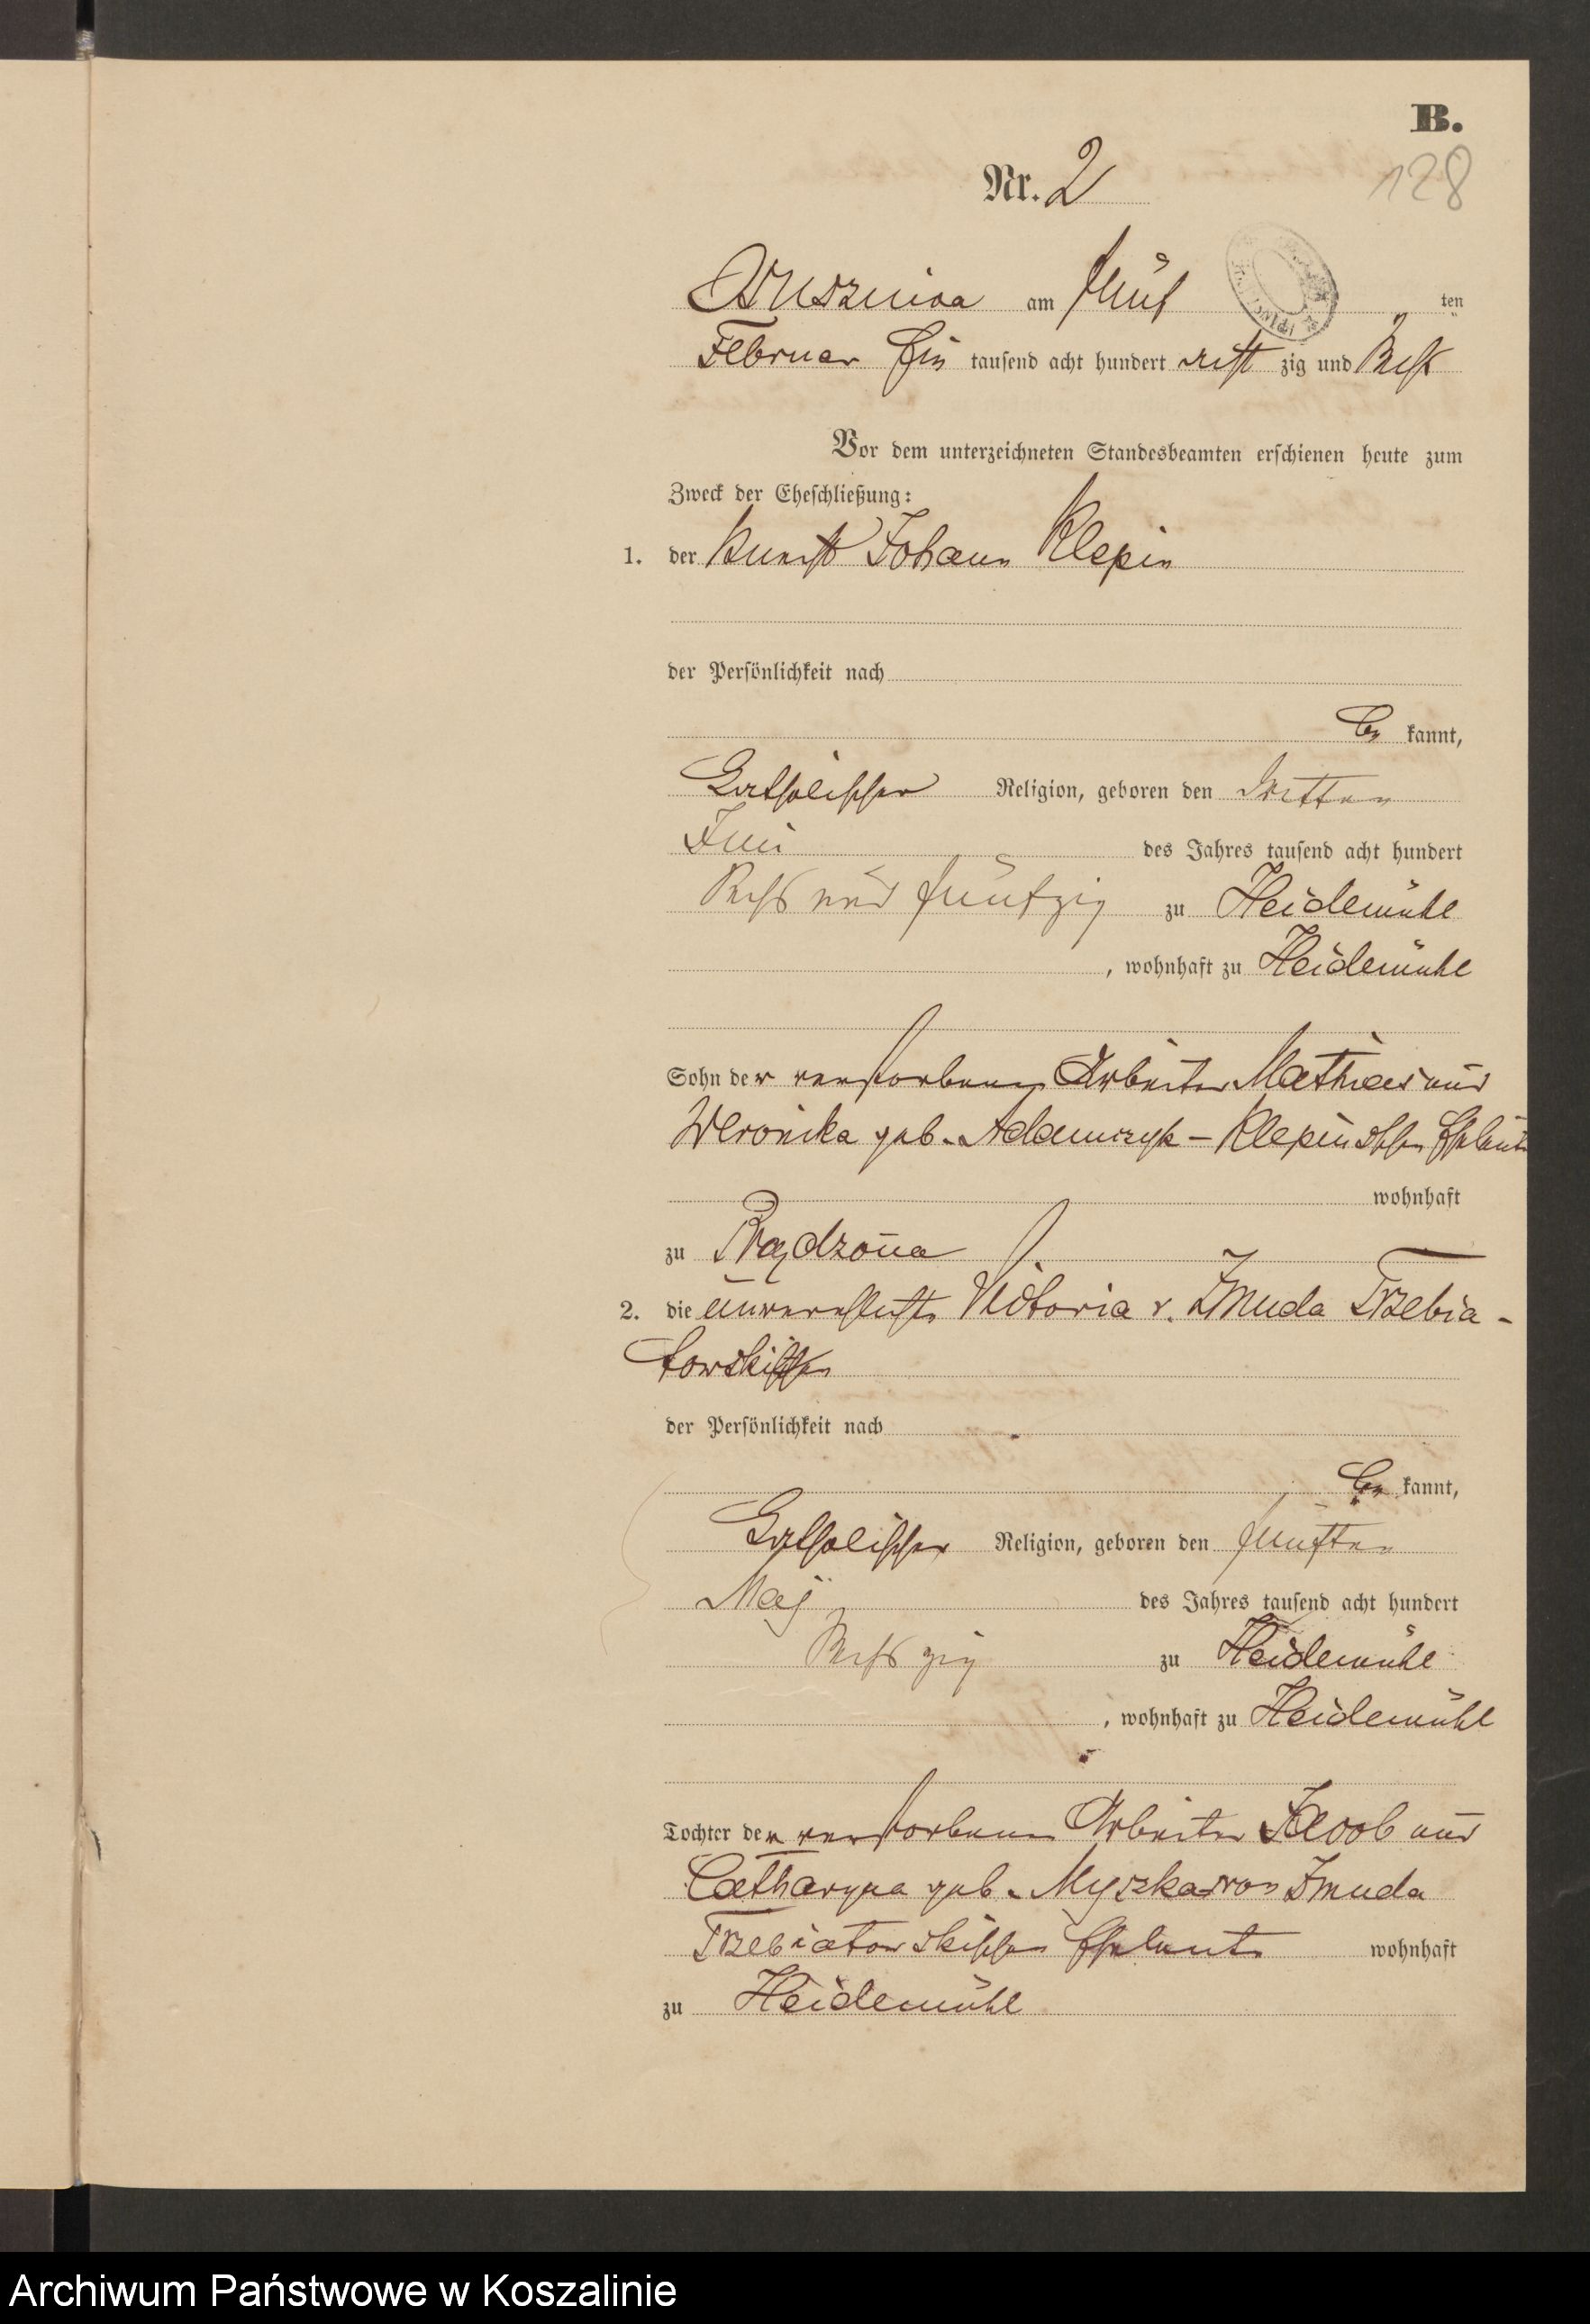 B.
Nr. 2
128
am fünf ten
Februar Ein tausend acht hundert acht zig und sechs
Vor dem unterzeichneten Standesbeamten erschienen heute zum
Zweck der Eheschließung:
1. der Knecht Johann Klepin
der Persönlichkeit nach
be kannt,
Catholischer Religion, geboren den dritten
des Jahres tausend acht hundert
sechs und fünfzig zu Heidemühl
, wohnhaft zu Heidemühl
Sohn der verstorbenen Arbeiter Mathias und
Weronika geb. Adamczyk - Klepinschen Eheleute
wohnhaft
zu Prądzona
2. die unverehelichte Victoria v. Zmuda Trzebia-
towski
der Persönlichkeit nach
be kannt,
Catholischer Religion, geboren den fünften
Maj des Jahres tausend acht hundert
sechs zig zu Heidemühl
, wohnhaft zu Heidemühl
Tochter der verstorbenen Arbeiter Jacob und
Catharyna geb. Myszka von Zmuda
Trzebiatowskischen Eheleute wohnhaft
zu Heidemühl
Archiwum Państwowe w Koszalinie